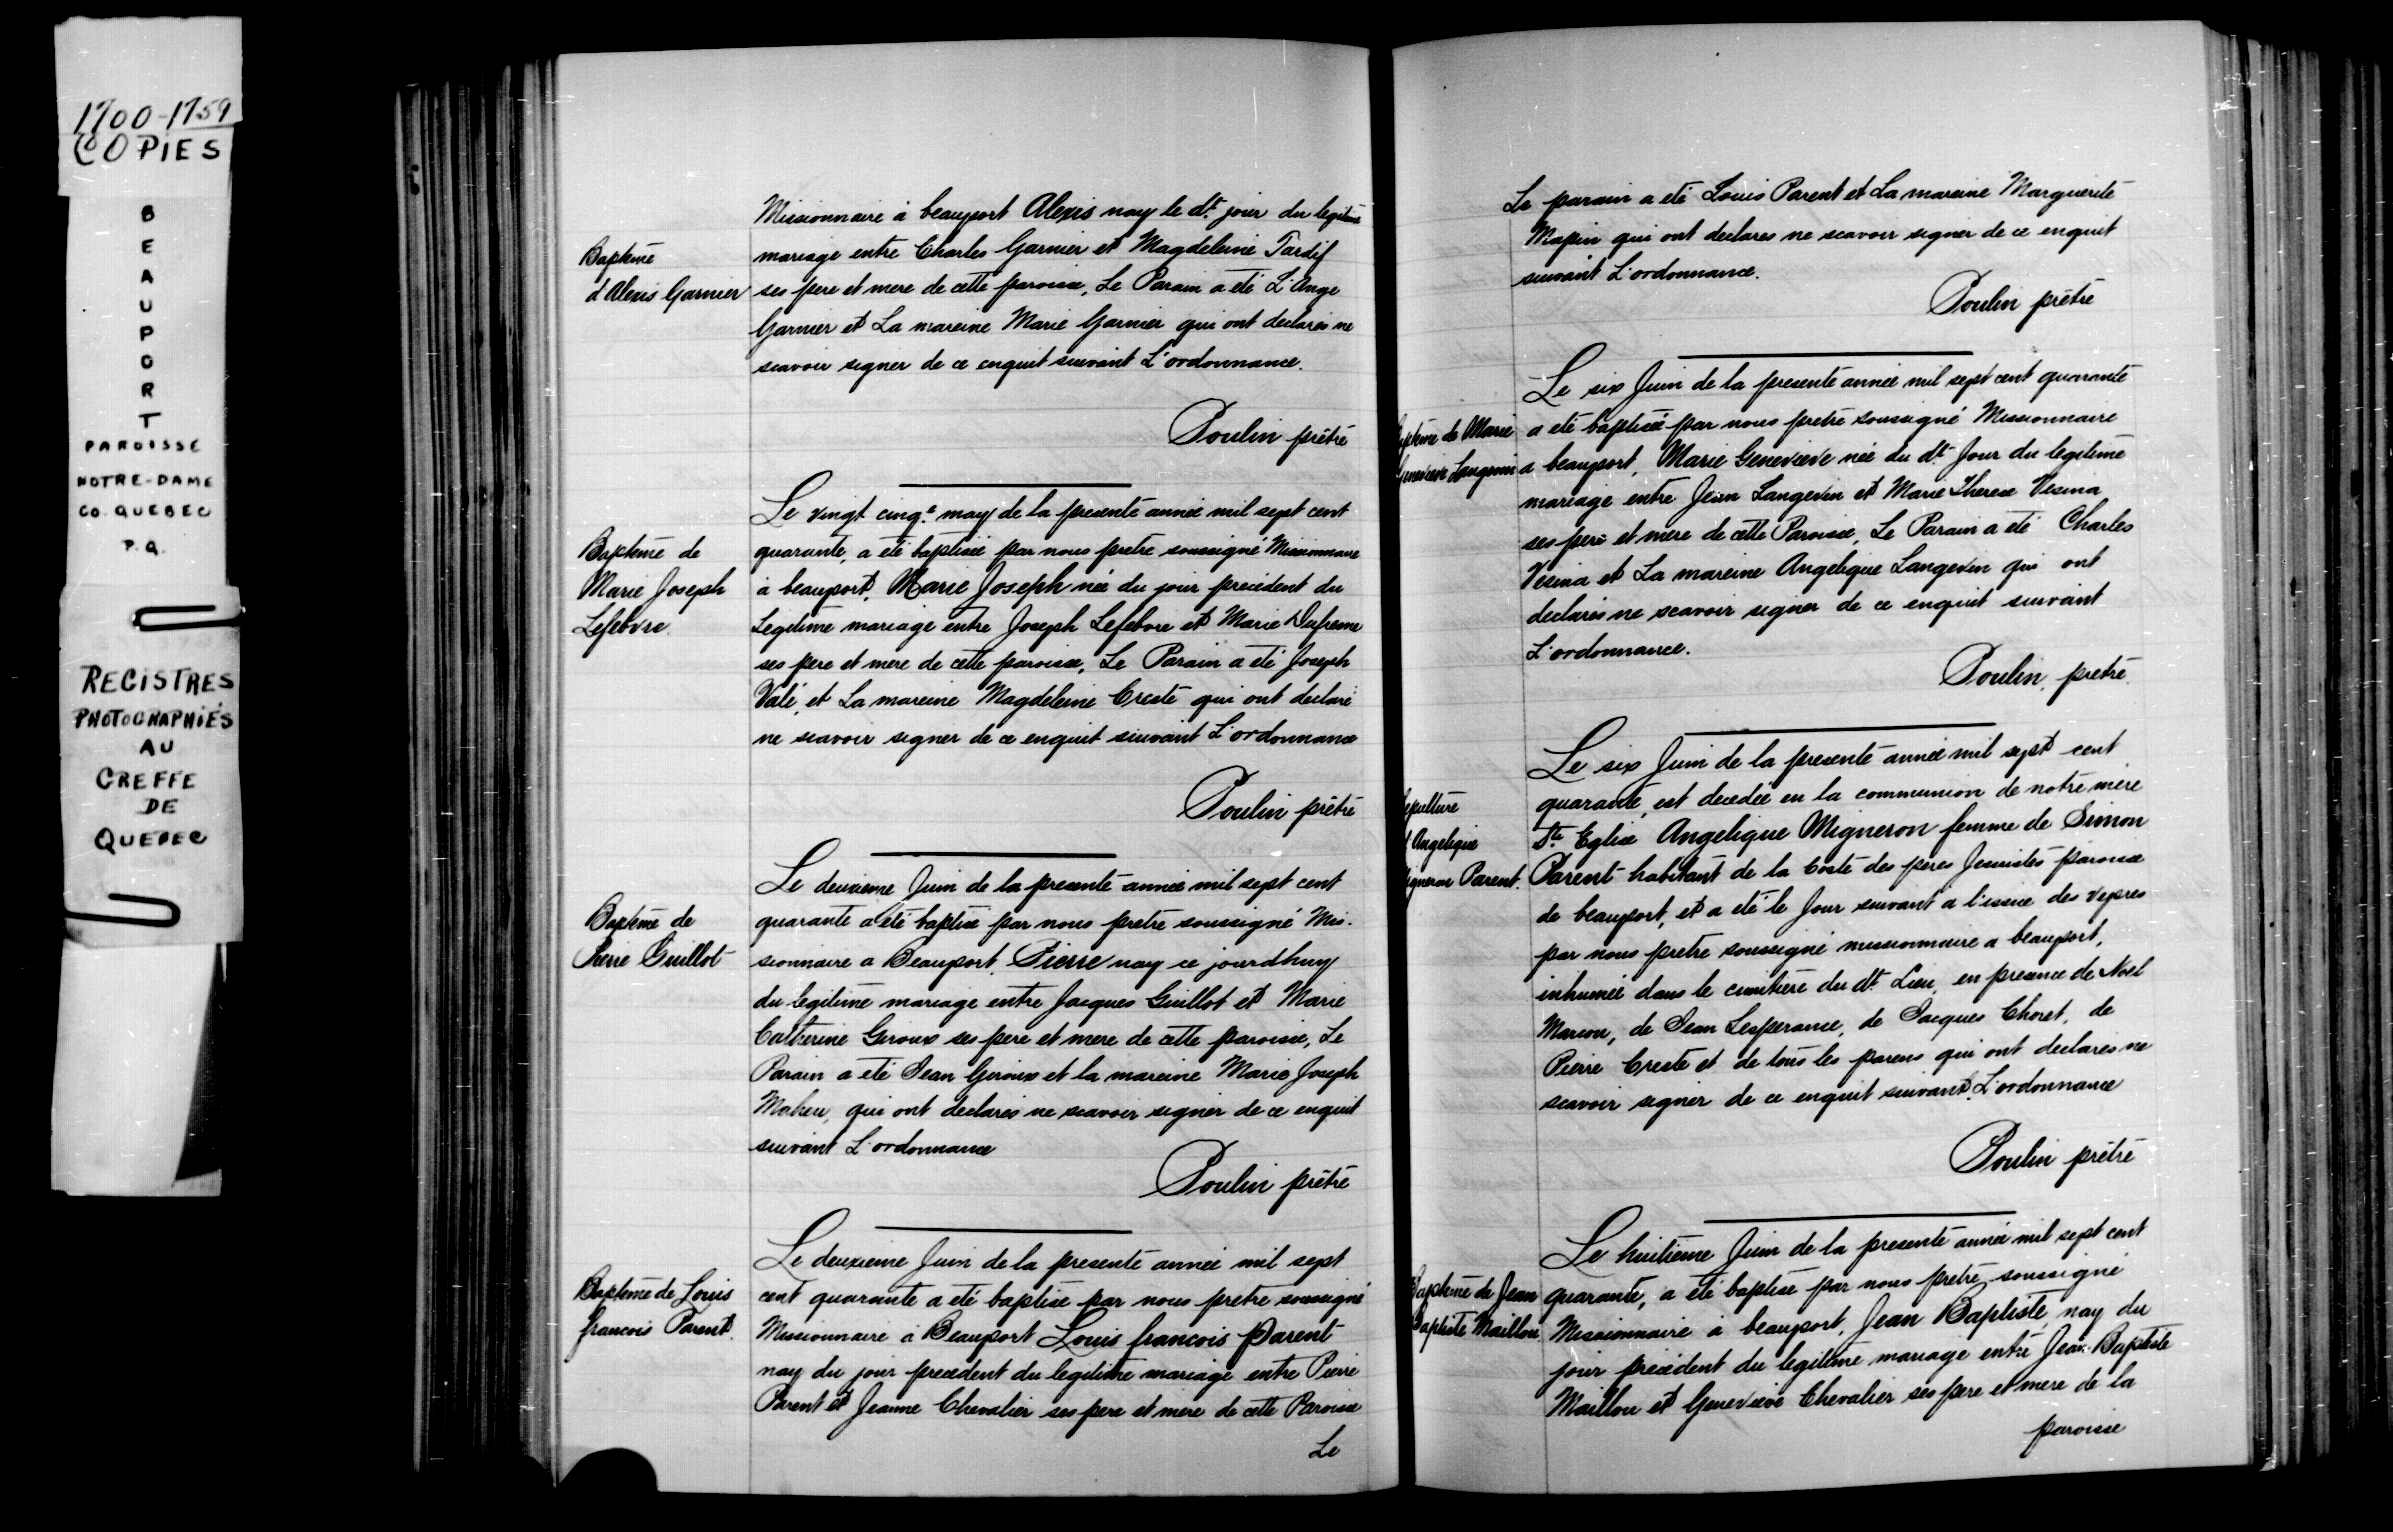 1700-1759
COPIES
BEAUPORT
PAROISSE
NOTRE-DAME
CO. QUEBEC
P.Q.
REGISTRES
PHOTOGRAPHIÉS
AU
GREFFE
DE
QUEBEC
Missionnaire à beauport Alexis nay le dt. jour du legitime
Baptême
d'Alexis Garnier
mariage entre Charles Garnier et Magdeleine Tardif
ses pere et mere de cette paroisse, Le Parain a eté L'Ange
Garnier et La mareine Marie Garnier qui ont declarés ne
scavoir signer de ce enquit suivant L'ordonnance.
Poulin prêtre
Baptême de
Marie Joseph
Lefebvre
Le vingt cinqe. may de la presente année mil sept cent
quarante, a eté baptisée par nous pretre soussigné Missionnaire
à beauport, Marie Joseph née du jour precedent du
Legitime mariage entre Joseph Lefebvre et Marie Dufresne
ses pere et mere de cette paroisse, Le Parain a eté Joseph
Valé, et La mareine Magdeleine Creste qui ont declaré
ne scavoir signer de ce enquit suivant L'ordonnance
Poulin prêtre
Baptême de
Pierre Guillot
Le deuxieme Juin de la presente année mil sept cent
quarante a eté baptisé par nous pretre soussigné Mis-
sionnaire a Beauport, Pierre nay ce jourdhuy
du legitime mariage entre Jacques Guillot et Marie
Catherine Geroux ses pere et mere de cette paroisse, Le
Parain a eté Jean Geroux et la mareine Marie Joseph
Maheu, qui ont declarés ne scavoir signer de ce enquit
suivant L'ordonnance
Poulin prêtre
Baptême de Louis
francois Parent.
Le deuxieme Juin de la presente année mil sept
cent quarante a eté baptisé par nous pretre soussigné
Missionnaire à Beauport Louis francois Parent
nay du jour precedent du legitime mariage entre Pierre
Parent et Jeanne Chevalier ses pere et mere de cette Paroisse
Le
Le parain a eté Louis Parent et La mareine Marguerite
qui ont declares ne scavoir signer de ce enquit
suivant L'ordonnance.
Poulin prêtre
Le six Juin de la presente année mil sept cent quarante
ptême de Marie
Genevieve Langevin
a eté baptisée par nous pretre soussigné Missionnaire
a beauport, Marie Genevieve née du dt. Jour du legitime
mariage entre Jean Langevin et Marie Therese Vesina
ses pere et mere de cette Paroisse, Le Parain a eté Charles
Vesina et La mareine Angelique Langevin qui ont
declarés ne scavoir signer de ce enquit suivant
L'ordonnance.
Poulin, pretre
epulture
d'Angelique
igneron Parent.
Le six Juin de la presente année mil sept cent
quarante, est decedée en la communion de notre mere
Ste. Eglise Angelique Migneron femme de Simon
Parent habitant de la Coste des peres Jesuistes paroisse
de beauport, et a eté le Jour suivant a l'issue des vepres
par nous pretre soussigné missionnaire a beauport,
inhumée dans le cimitiere du dt. Lieu, en presence de Noel
Marcou, de Jean Lesperance, de Jacques Choret, de
Pierre Creste et de tous les parens qui ont declarés ne
scavoir signer de ce enquit suivant L'ordonnance
Poulin prêtre
Baptême de Jean
Baptiste Maillou
Le huitième Juin de la presente année mil sept cent
quarante, a eté baptisé par nous pretre soussigné
Missionnaire à beauport, Jean Baptiste, nay du
jour precedent du legitime mariage entre Jean-Baptiste
Maillou et Genevieve Chevalier ses pere et mere de la
paroisse